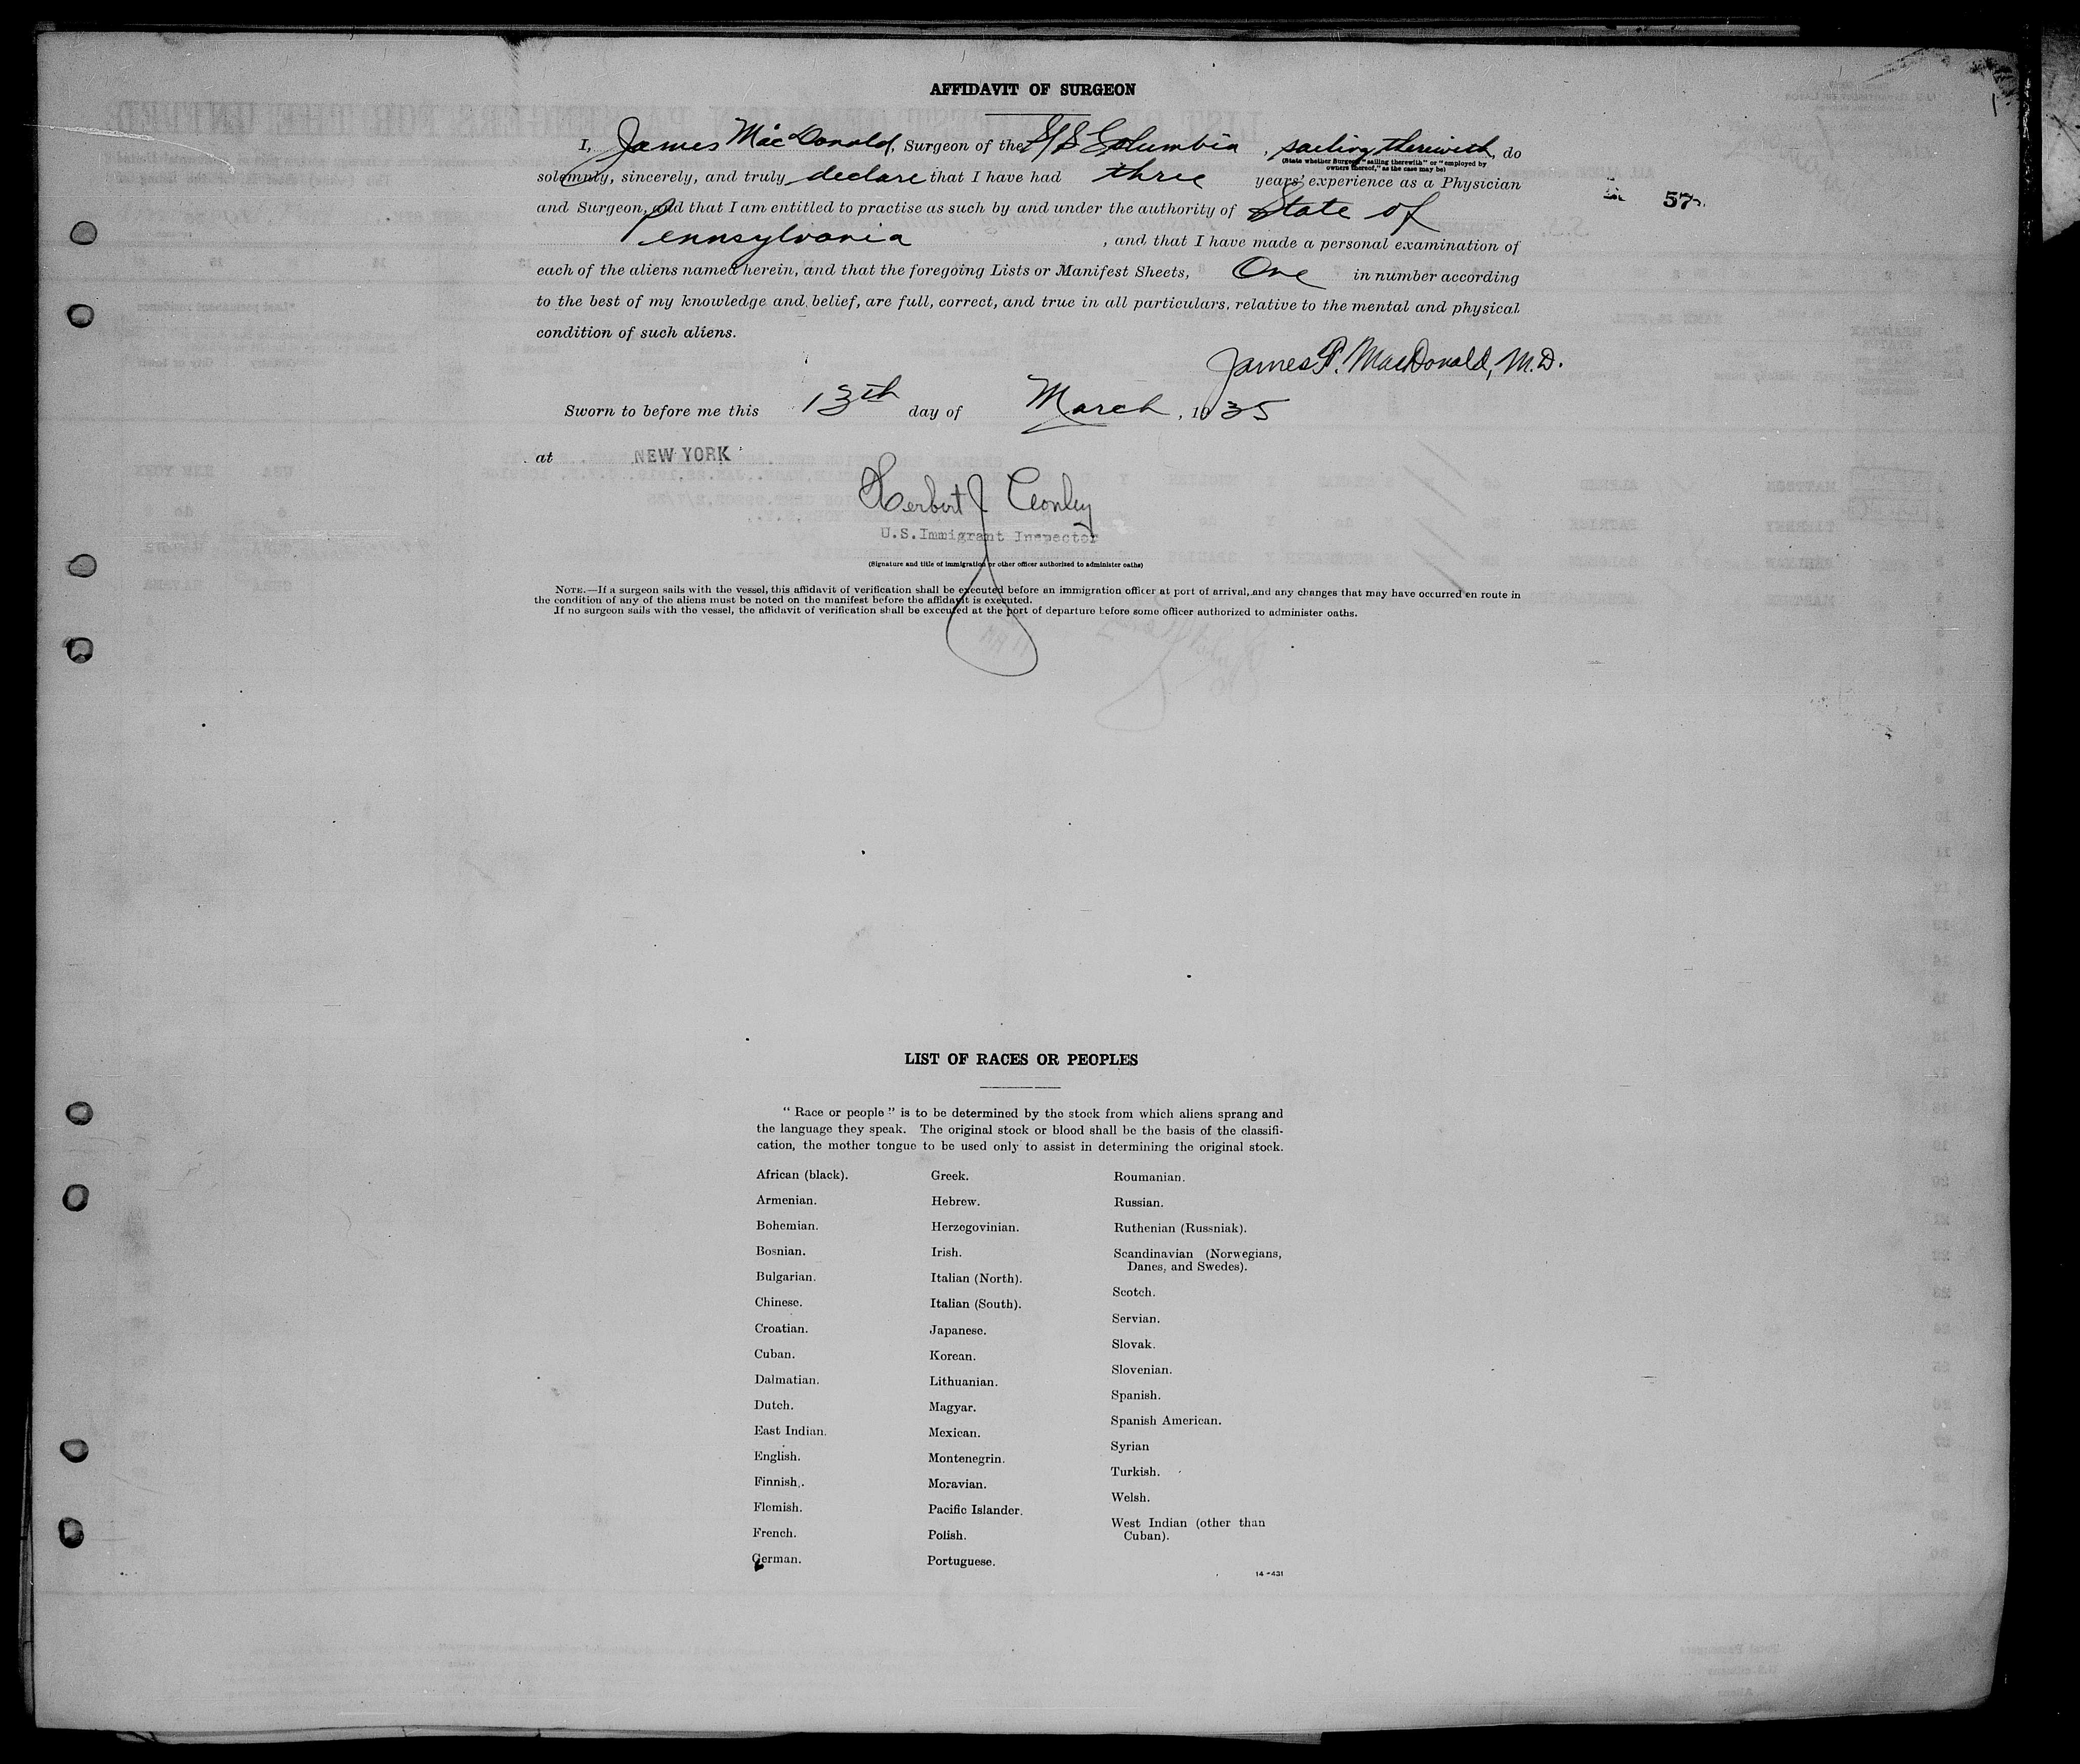 AFFIDAVIT OF SURGEON
I, James MacDonald, Surgeon of the S/S Columbia, sailing therewith, do
(State whether Surgeon "sailing therewith" or "employed by
owners thereof," as the case may be)
solemnly, sincerely, and truly declare that I have had three years' experience as a Physician
57
and Surgeon, and that I am entitled to practise as such by and under the authority of State of
Pennsylvania, and that I have made a personal examination of
each of the aliens named herein, and that the foregoing Lists or Manifest Sheets, One in number according
to the best of my knowledge and belief, are full, correct, and true in all particulars, relative to the mental and physical
condition of such aliens.
James P. MacDonald, M.D.
Sworn to before me this 13th day of March, 1935
at NEW YORK
Herbert J
U.S. Immigrant Inspector
(Signature and title of immigration or other officer authorized to administer oaths)
NOTE.—If a surgeon sails with the vessel, this affidavit of verification shall be executed before an immigration officer at port of arrival, and any changes that may have occurred en route in
the condition of any of the aliens must be noted on the manifest before the affidavit is executed.
If no surgeon sails with the vessel, the affidavit of verification shall be executed at the port of departure before some officer authorized to administer oaths.
LIST OF RACES OR PEOPLES
"Race or people" is to be determined by the stock from which aliens sprang and
the language they speak. The original stock or blood shall be the basis of the classifi-
cation, the mother tongue to be used only to assist in determining the original stock.
African (black).
Armenian.
Bohemian.
Bosnian.
Bulgarian.
Chinese.
Croatian.
Cuban.
Dalmatian.
Dutch.
East Indian.
English.
Finnish.
Flemish.
French.
German.
Greek.
Hebrew.
Herzegovinian.
Irish.
Italian (North).
Italian (South).
Japanese.
Korean.
Lithuanian.
Magyar.
Mexican.
Montenegrin.
Moravian.
Pacific Islander.
Polish.
Portuguese.
Roumanian.
Russian.
Ruthenian (Russniak).
Scandinavian (Norwegians,
Danes, and Swedes).
Scotch.
Servian.
Slovak.
Slovenian.
Spanish.
Spanish American.
Syrian
Turkish.
Welsh.
West Indian (other than
Cuban).
14-431